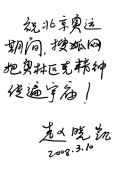 祝北京奥运
期间，搜狐网
把奥林匹克精神
传遍宇宙！
赵文晓凯
2008.3.10